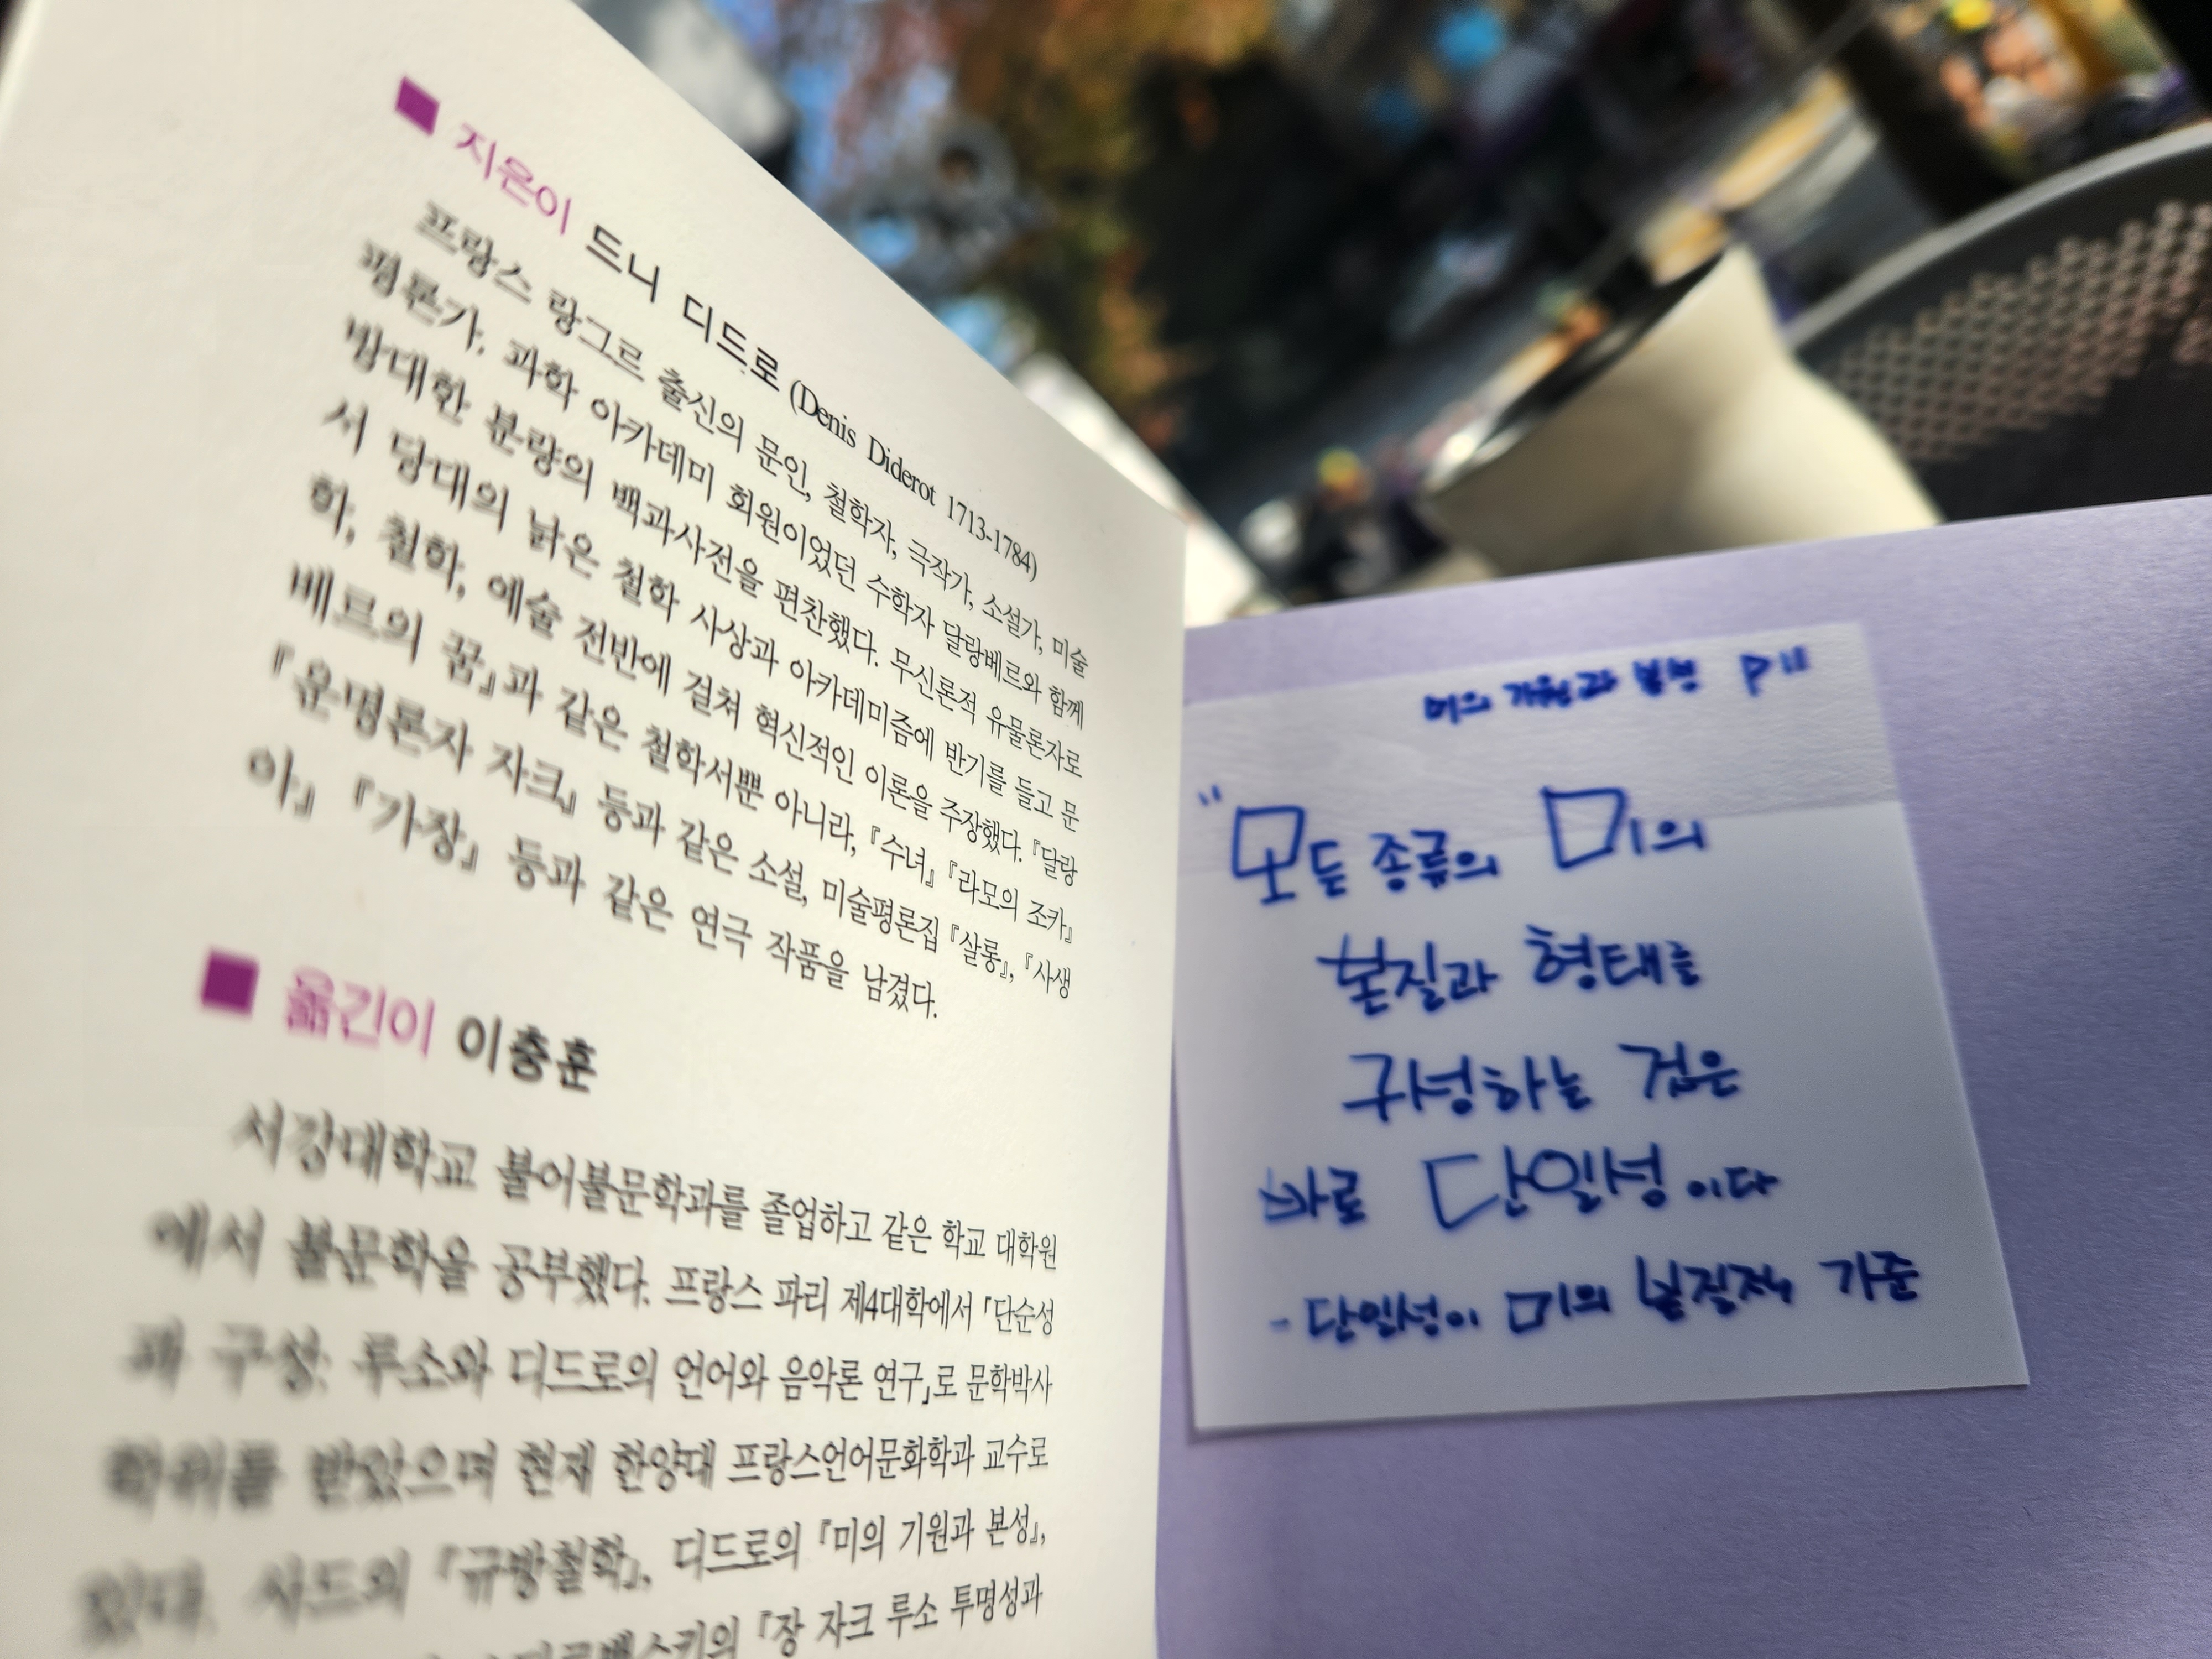 ■ 지은이 드니 디드로 (Denis Diderot 1713-1784)
프랑스 랑그르 출신의 문인, 철학자, 극작가, 소설가, 미술
평론가. 과학 아카데미 회원이었던 수학자 달랑베르와 함께
방대한 분량의 백과사전을 편찬했다. 무신론적 유물론자로
서 당대의 낡은 철학 사상과 아카데미즘에 반기를 들고 문
학, 철학, 예술 전반에 걸쳐 혁신적인 이론을 주장했다. 『달랑
베르의 꿈』과 같은 철학서뿐 아니라, 『수녀』 『라모의 조카』
『운명론자 자크』 등과 같은 소설, 미술평론집 『살롱』, 『사생
아』 『가장』 등과 같은 연극 작품을 남겼다.
■ 옮긴이 이충훈
서강대학교 불어불문학과를 졸업하고 같은 학교 대학원
에서 불문학을 공부했다. 프랑스 파리 제4대학에서 「단순성
과 구성: 루소와 디드로의 언어와 음악론 연구」로 문학박사
학위를 받았으며 현재 한양대 프랑스언어문화학과 교수로
있다. 사드의 『규방철학』, 디드로의 『미의 기원과 본성』,
『장 자크 루소 투명성과
미의 기원과 본성 P11
"모든 종류의 미의
본질과 형태를
구성하는 것은
바로 단일성이다
- 단일성이 미의 본질적 기준